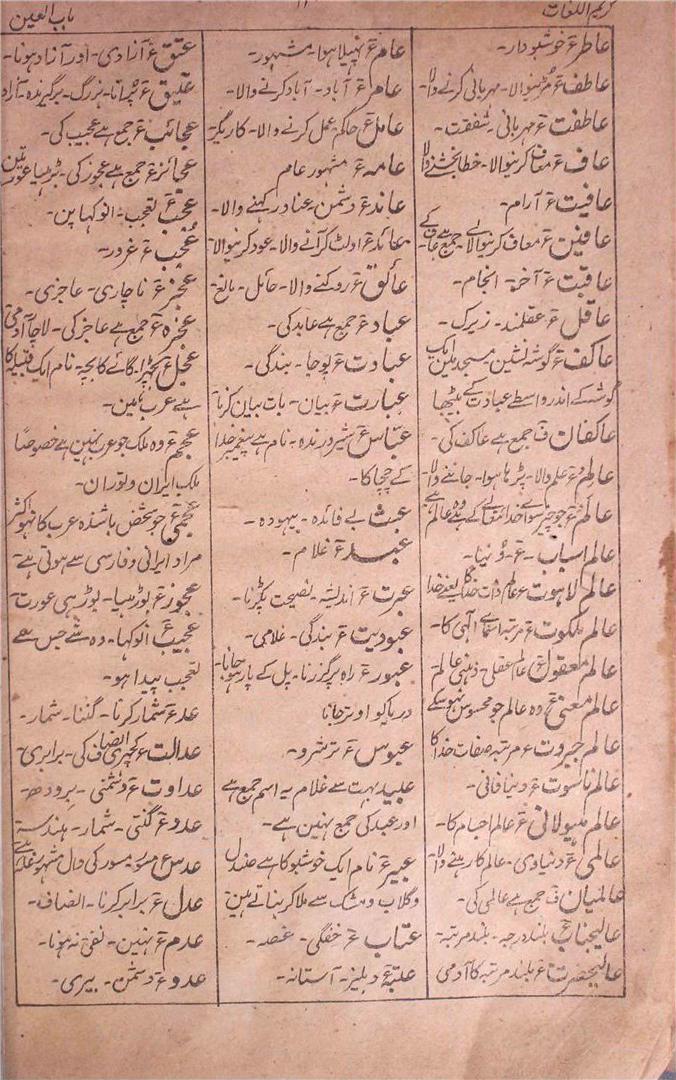 کریم اللغات
باب العین
عاطر ع خوشبودار۔
عاطف ع مُڑنیوالا۔ مہربانی کرنے والا
عاطفت ع مہربانی۔ شفقت۔
عاف ع معاف کرنیوالا۔ خطا بخشنے والا
عافیت ع آرام۔
عافین ع معاف کرنیوالے جمع ہے عاف کے
عاقبت ع آخر۔ انجام۔
عاقل ع عقلمند۔ زیرک۔
عاکف ع گوشہ نشین۔ مسجد میں ایک
گوشہ کے اندر واسطے عبادت کے بیٹھا
عاکفان ف جمع ہے عاکف کی۔
عالم ع علم والا۔ پڑہا ہوا۔ جاننے والا۔
عالم ع جو چیز سوائے خدا تعالے کے ہے وہ عالم ہے
عالم اسباب۔ ع۔ دُنیا۔
عالم لاہوت ع عالم ذات خدا کا یعنے خدا
عالم ملکوت ع مرتبہ اسمائے الٰہی کا۔
عالم معقول ع عالم عقلی۔ ذہنی عالم۔
عالم معنی ع وہ عالم جو محسوس نہوسکے
عالم جبروت ع مرتبہ صفات خدا کا
عالم ناسوت ع دنیا فانی۔
عالم ہیولانی ع عالم اجسام کا۔
عالمی ع دنیاوی۔ عالم کا رہنے والا۔
عالمیان ف جمع ہے عالمی کی۔
عالیجناب ع بلند درجہ۔ بلند مرتبہ۔
عالیحضرت ع بلند مرتبہ کا آدمی
عام ع پھیلا ہوا۔ مشہور۔
عامر ع آباد۔ آباد کرنے والا۔
عامل ع حاکم عمل کرنے والا۔ کاریگر۔
عامہ ع مشہور عام
عاند ع دشمن عناد رکہنے والا۔
عائد ع اولٹ کر آنے والا۔ عود کرنیوالا
عائق ع روکنے والا۔ حائل۔ مانع۔
عباد ع جمع ہے عابد کی۔
عبادت ع پوجا۔ بندگی۔
عبارت ع بیان۔ بات بیان کرنا
عباس ع شیر درندہ۔ نام ہے پیغمبر خدا
کے چچا کا۔
عبث بے فائدہ۔ بیہودہ۔
عبد ع غلام۔
عبرت ع اندیشہ۔ نصیحت پکڑنا۔
عبودیت ع بندگی۔ غلامی۔
عبور ع راہ پر گزرنا۔ پل کے پار ہوجانا۔
دریا کو اوترجانا
عبوس ع ترشرو۔
عبید بہت سے غلام یہ اسم جمع ہے
اور عبد کی جمع نہین ہے۔
عبیر ع نام ایک خوشبو کا ہے صندل
و گلاب و مشک سے ملا کر بناتے ہین
عتاب ع خفگی۔ غصہ۔
عتبہ ع دہلیز۔ آستانہ۔
عتق ع آزادی۔ اور آزاد ہونا۔
عتیق ع پُرانا۔ بزرگ۔ برگزیدہ۔ آزاد
عجائب ع جمع ہے عجیب کی۔
عجائز ع جمع ہے عجوز کی۔ بڑہیا عورتین
عجب ع تعجب۔ انوکہا پن۔
عُجب ع غرور۔
عجز ع ناچاری۔ عاجزی۔
عجزہ ع جمع ہے عاجز کی۔ لاچار آدمی
عجل ع بچھڑا۔ گائے کا بچہ۔ نام ایک قبیلہ کا
ہے عرب مین۔
عجم ع وہ ملک جو عرب نہین ہے خصوصًا
ملک ایران و توران۔
عجمی جو شخص باشندہ عرب کا نہو اکثر
مراد ایرانی و فارسی سے ہوتی ہے
عجوز ع بوڑہیا۔ بوڑہی عورت۔
عجیب ع انوکہا۔ وہ شے جس سے
تعجب پیدا ہو۔
عد ع شمار کرنا۔ گننا۔ شمار۔
عدالت ع کچہری انصاف کی۔ برابری
عداوت ع دشمنی۔ بِرودھ۔
عدد ع گنتی۔ شمار۔ ہندسہ
عدس ع مسور۔ مسور کی دال مشہور غلہ ہے
عدل ع برابر کرنا۔ انصاف۔
عدم ع نہین۔ نفی نہ ہونا۔
عدو ع دشمن۔ بیری۔